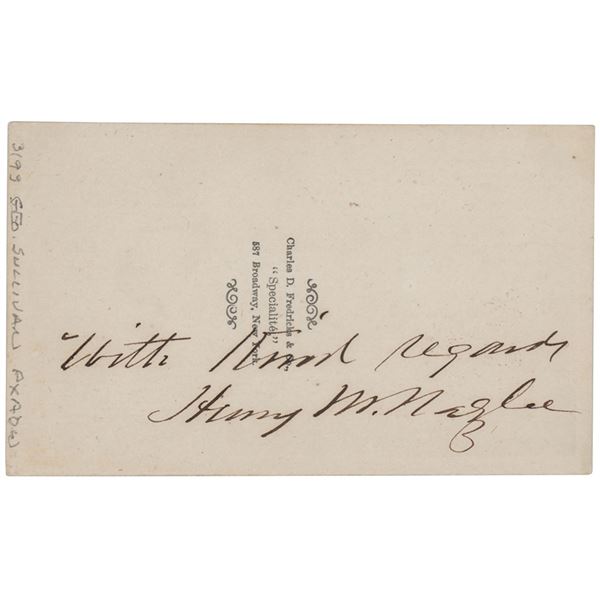 With kind regards
Henry M. Naglee
Charles D. Fredricks & Co.,
"Specialité"
587 Broadway, New York.
3/93 GEO. SULLIVAN